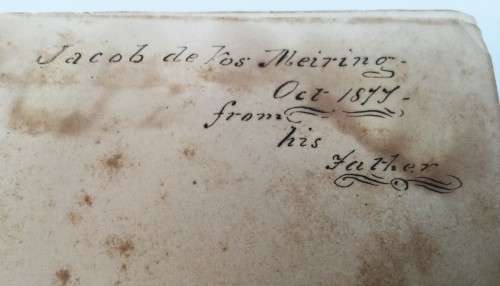 Jacob de Vos Meiring.
Oct 1877.
from
his
Father